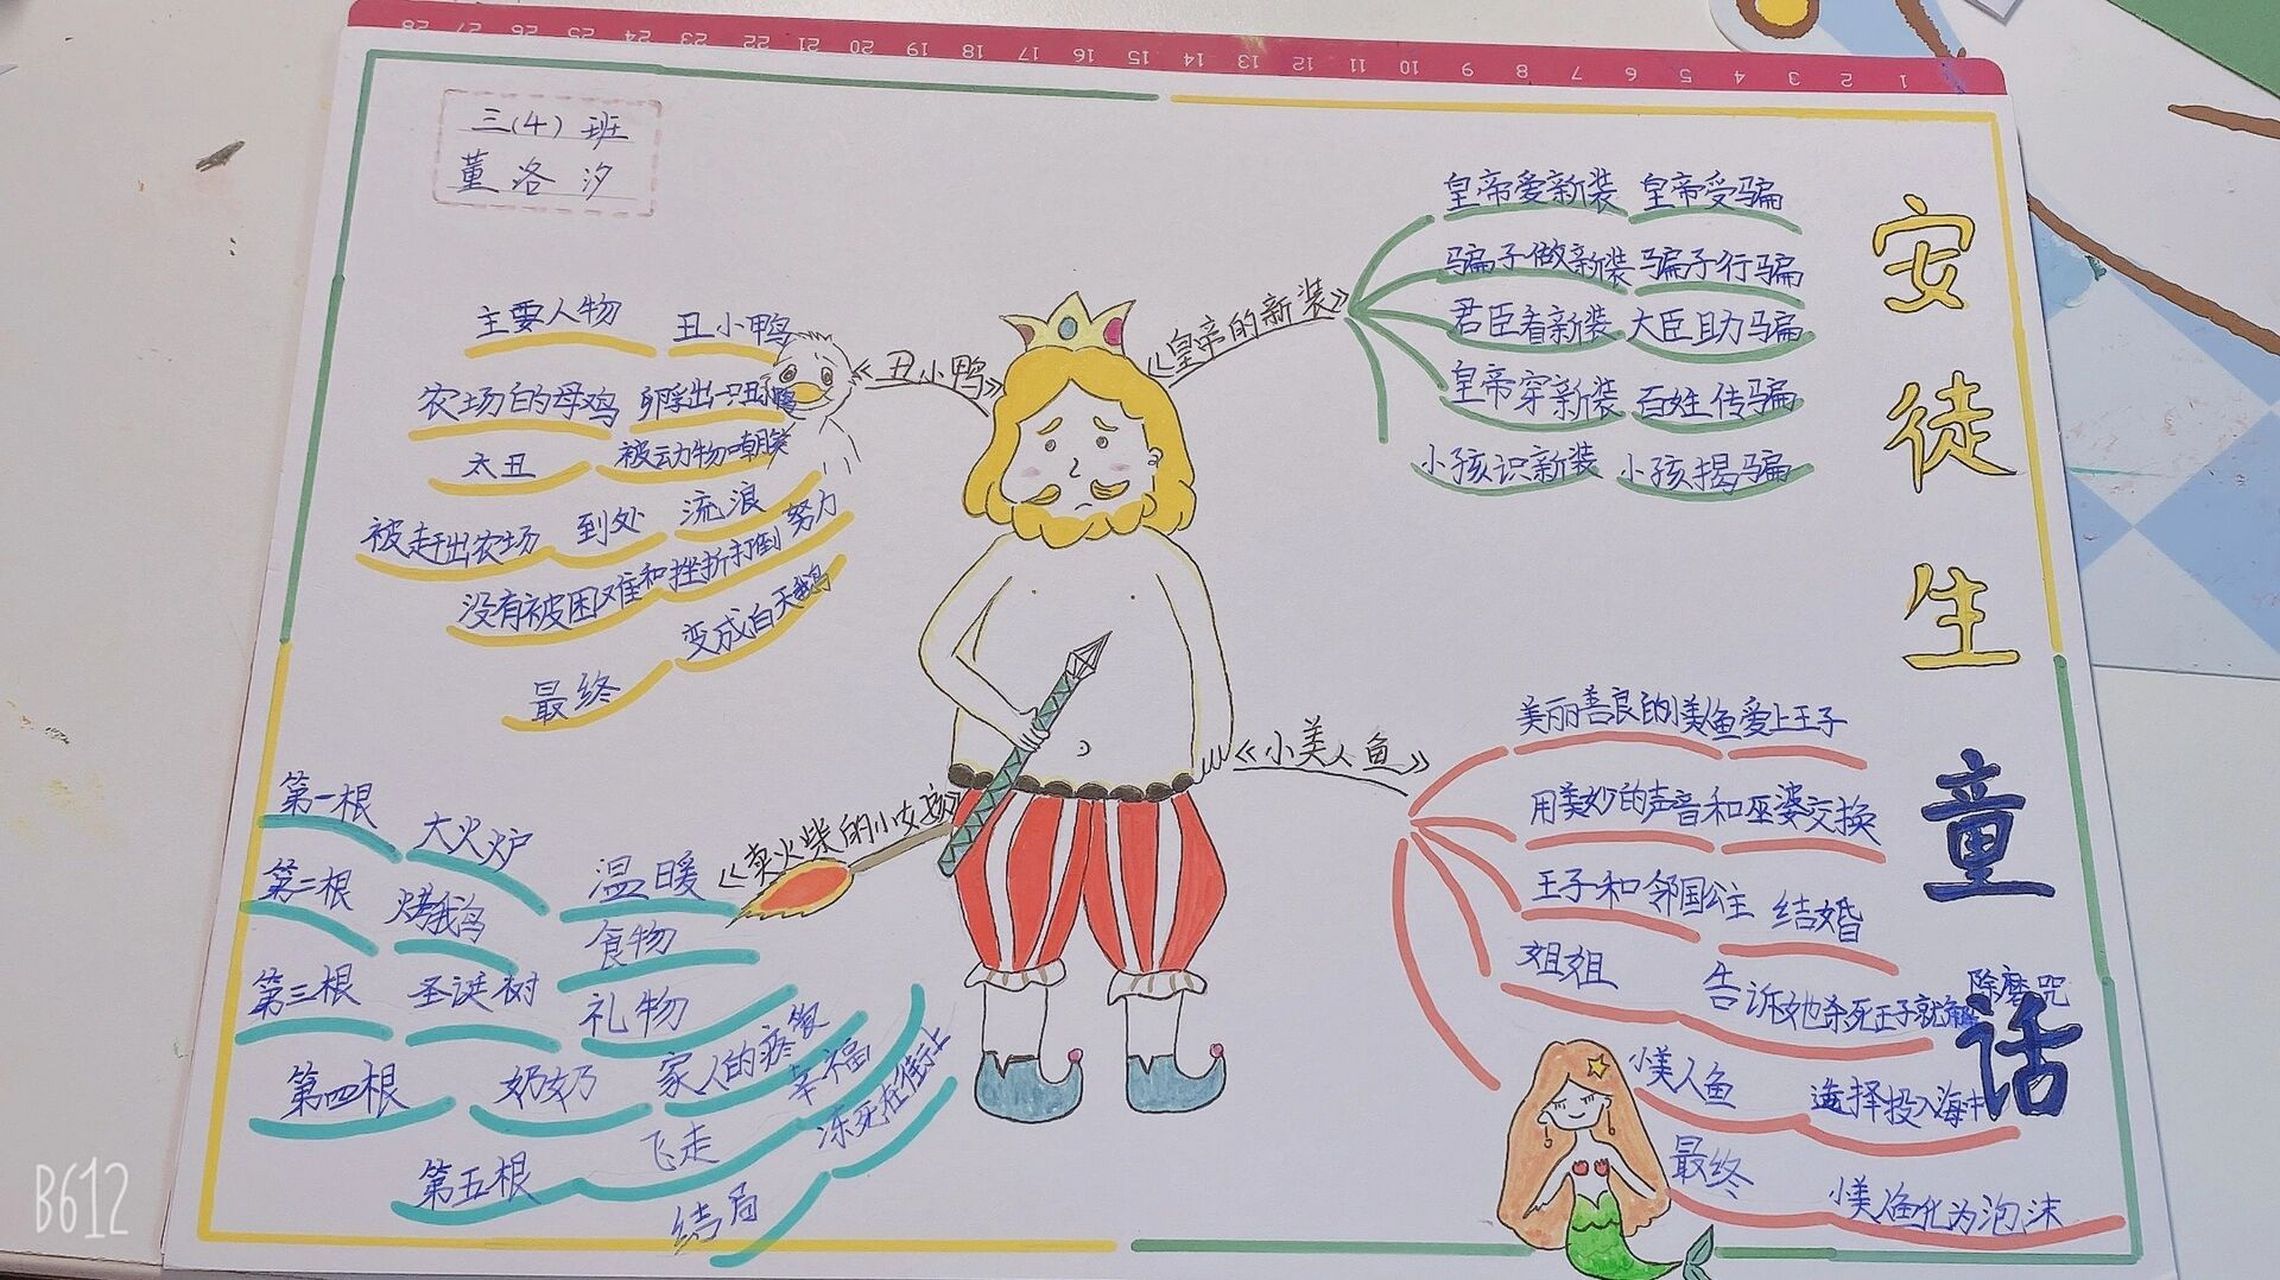 28 27 26 25 24 23 22 21 20 19 18 17 16 15 14 13 12 11 10 9 8 7 6 5 4 3 2 1
三(4)班
董洛汐
安徒生童话
《丑小鸭》
主要人物 丑小鸭
农场的母鸡 卵孵出一只丑小鸭
太丑 被动物嘲笑
被赶出农场 到处 流浪
没有被困难和挫折打倒 努力
最终 变成白天鹅
《皇帝的新装》
皇帝爱新装 皇帝受骗
骗子做新装 骗子行骗
君臣看新装 大臣助骗
皇帝穿新装 百姓传骗
小孩识新装 小孩揭骗
《卖火柴的小女孩》
第一根 大火炉 温暖
第二根 烤鹅 食物
第三根 圣诞树 礼物
第四根 奶奶 家人的疼爱
第五根 飞走 幸福
结局 冻死在街上
《小美人鱼》
美丽善良的小美人鱼 爱上王子
用美妙的声音 和巫婆交换
王子和邻国公主 结婚
姐姐 告诉她杀死王子就解除魔咒
小美人鱼 选择投入海中
最终 小美人鱼化为泡沫
B612